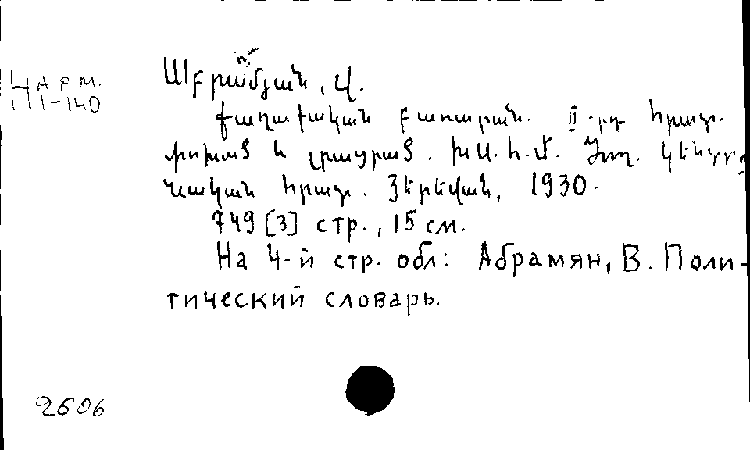 АРМ.
1-140
Աբրամյան, Վ.
Քաղաքական բառարան. II-րդ հրատ.
փոխած և լրացրած. ԽՍ.Հ.Մ. Ժող. կենտրո
նական հրատ. Յերեվան, 1930.
749 [3] стр., 15 см.
На 4-й стр. обл: Абрамян, В. Поли-
тический словарь.
2606